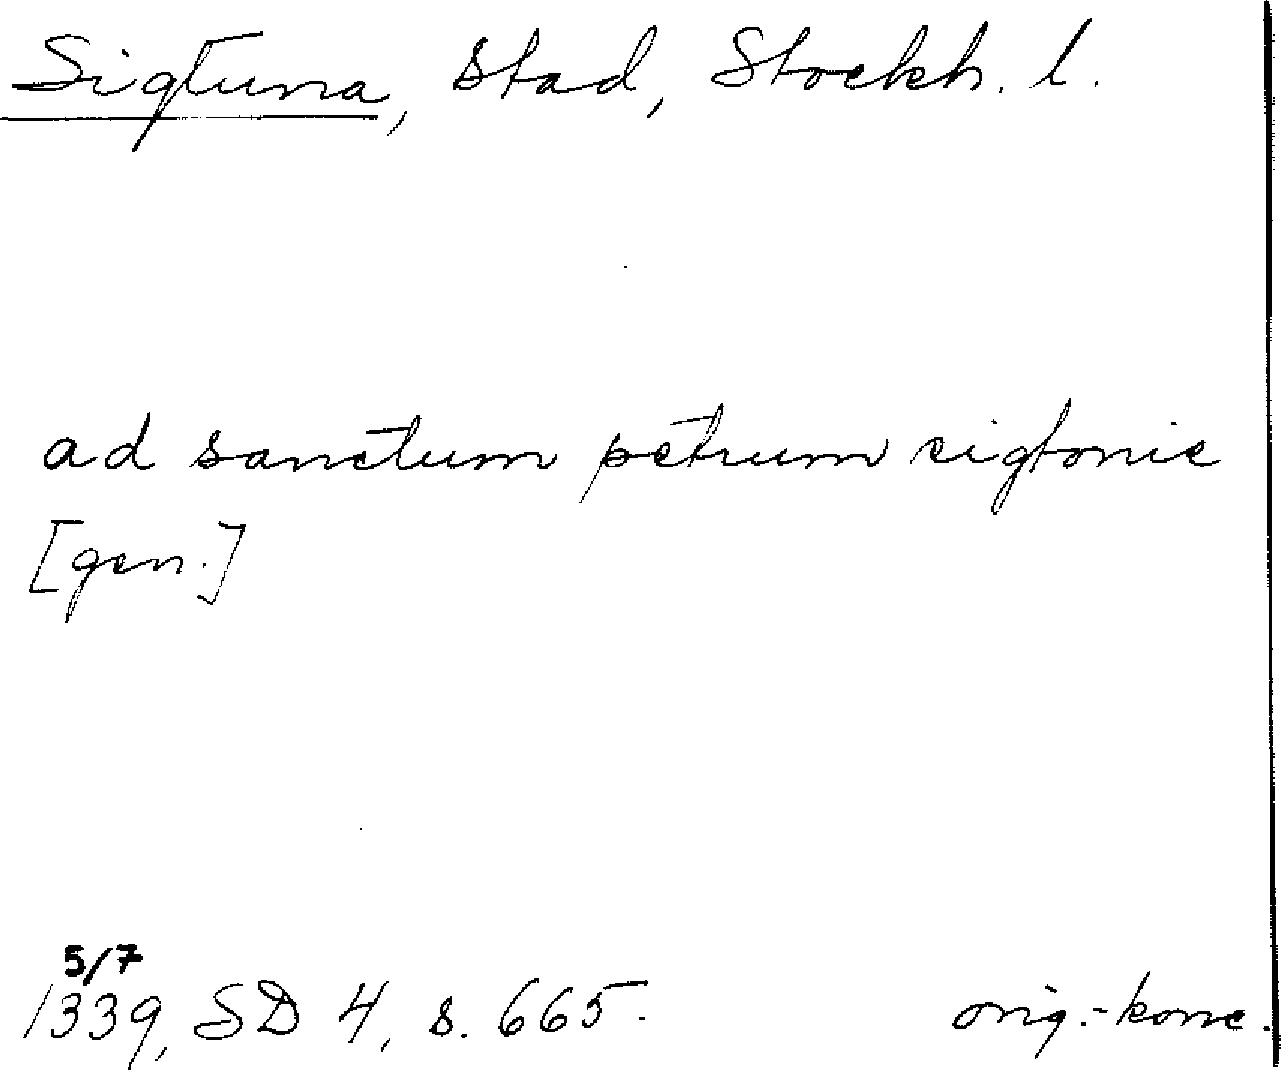 Sigtuna, Stad, Stockh. l.
ad sanctum petrum sigtonie
[gen.]
5/7
1339, SD 4, s. 665.
orig.-konc.